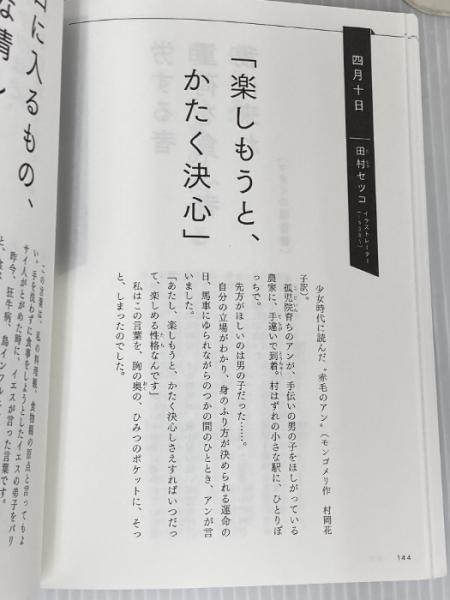 四月十日
田村セツコ
イラストレーター
「楽しもうと、
かたく決心」
少女時代に読んだ〝赤毛のアン〟(モンゴメリ作 村岡花
子訳)。
孤児院育ちのアンが、手伝いの男の子をほしがっている
農家に、手違いで到着。村はずれの小さな駅に、ひとりぼ
っちで。
先方がほしいのは男の子だった……。
自分の立場がわかり、身のふり方が決められる運命の
日、馬車にゆられながらのつかの間のひととき、アンが言
いました。
「あたし、楽しもうと、かたく決心しさえすればいつだっ
て、楽しめる性格なんです」
私はこの言葉を、胸の奥の、ひみつのポケットに、そっ
と、しまったのでした。
144
口に入るもの、
な情し
この言葉は、私の料理観、食物観の原点と言ってもよ
い。手を洗わずに食事をしようとしたイエスの弟子をパリ
サイ人がとがめた時に、イエスが言った言葉です。
昨今、狂牛病、鳥インフル